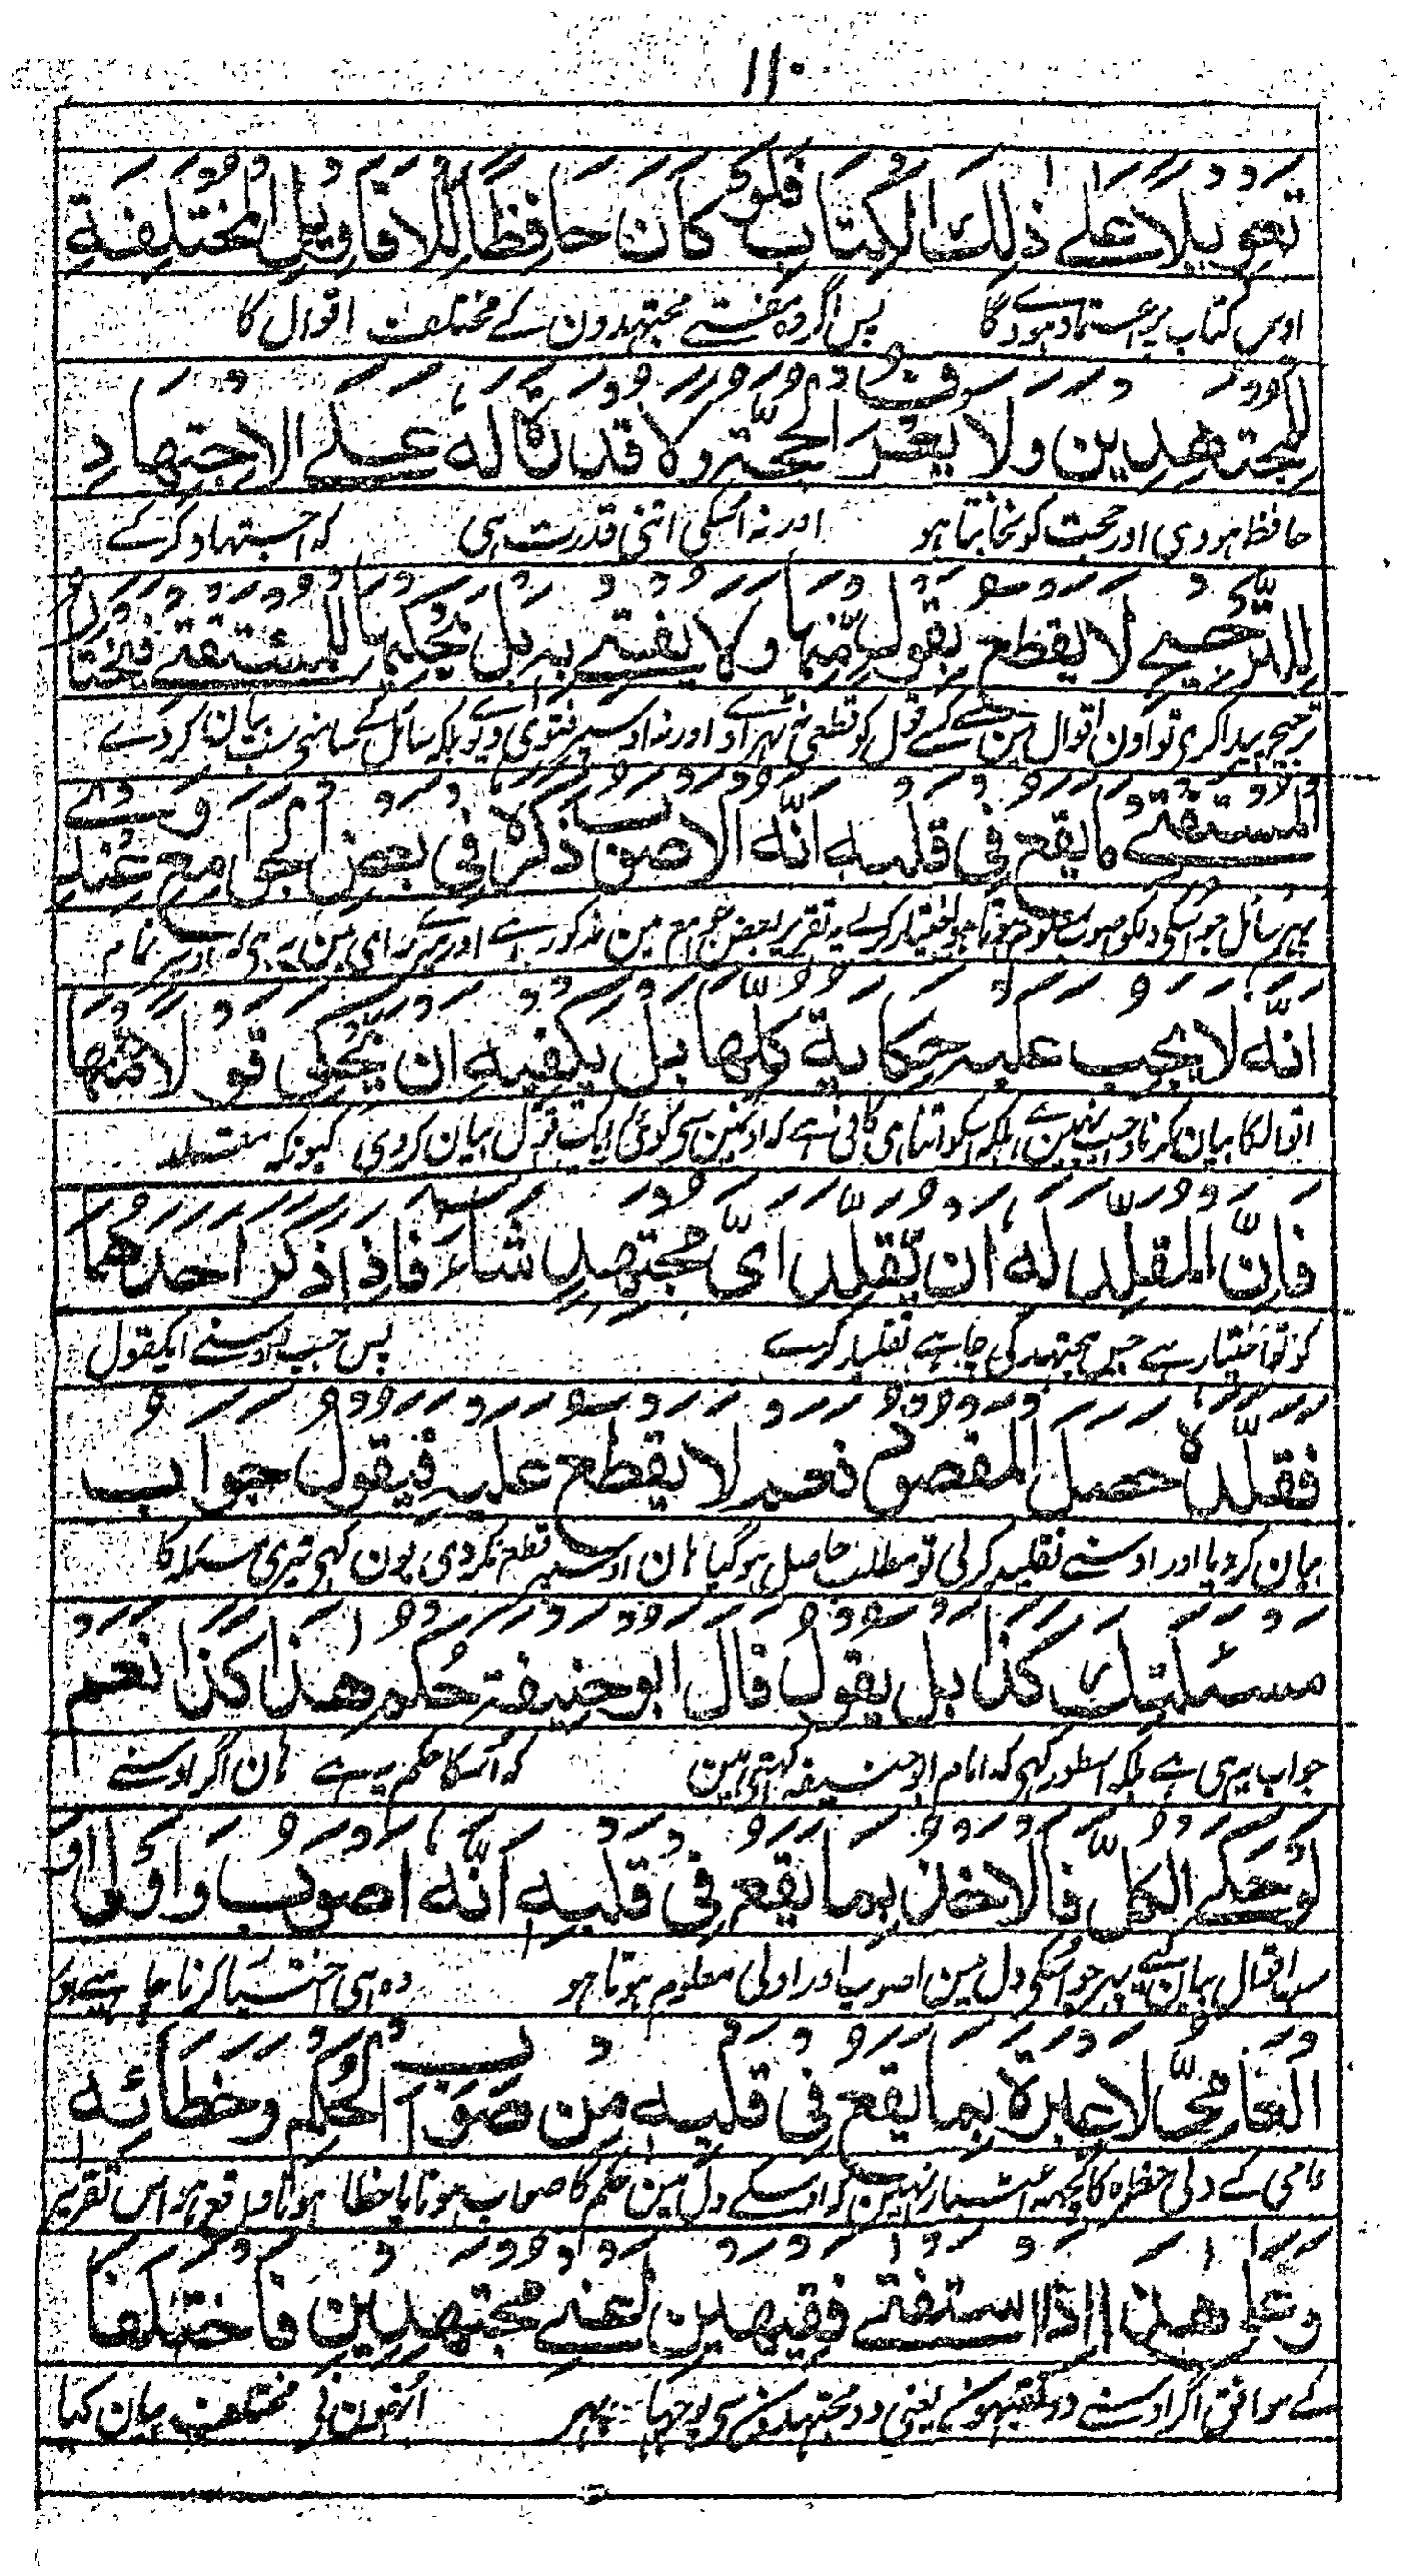 ۱۱۰
تَعوِيلًا على ذٰلِكَ الكِتَابِ فلَو كَانَ حَافِظًا لِلاَقاوِيلِ المُختَلِفَةِ
اوس کتاب پر اعتماد ہوویگا پس اگر وہ مفتے مجتہدون کے مختلف اقوال کا
لِلمُجتَهِدِينَ ولا يَعرِفُ الحُجَّةَ ولا قُدرَةَ لَه عَلى الاِجتِهادِ
حافظ ہووی اور حجت کو نجانتا ہو اور نہ اسکی اتنی قدرت ہی کہ اجتہاد کرکے
لِلتَّرجِيحِ لا يَقطَعُ بِقَولٍ مِّنهَا ولا يُفتِي بِه بَل يَحكِيهَا لِلمُستَفتِي فيَختَارُ
ترجیح پیدا کری تو اون اقوال مین سے کسے کے قول کو قطعی نٹہراوے اور نہ اوسپر فتوی دیوے بلکہ سائل کے سامنی سب بیان کردے
المُستَفتِي ما يَقَعُ فِي قَلبِه اَنَّه الاَصوَبُ ذَكَرَهُ فِي بَعضِ الجَوَامِعِ وعِندِي
پہر سائل جو اسکی دلکو اصوب معلوم ہوتا ہو اختیار کرلے یہ تقریر بعض جوامع مین مذکور ہے اور میرے رای مین یہ ہی کہ اوسپر تمام
اَنَّه لا يَجِبُ عَلَيهِ حِكَايَةُ كُلِّهَا بَل يَكفِيهِ اَن يَّحكِيَ قَولًا مِّنهَا
اقوالکا بیان کرنا واجب نہین ہے بلکہ اسکو اتنا ہی کافی ہے کہ اونمین سی کوئی ایک قول بیان کردی کیونکہ مقلد
فَاِنَّ المُقَلِّدَ لَه اَن يُّقَلِّدَ اَيَّ مُجتَهِدٍ شَاءَ فَاِذَا ذَكَرَ اَحَدَهُمَا
کو تو اختیار ہے جس مجتہد کی چاہے تقلید کرے پس جب اوسنے ایکقول
فَقَلَّدَهُ حَصَلَ المَقصُودُ نَعَم لا يَقطَعُ عَلَيهِ فيَقُولُ جَوَابُ
بیان کردیا اور اوسنے تقلید کرلی تو مطلب حاصل ہوگیا ہان اوسپر قطع نکردی یون کہی تیری مسئلہ کا
مَسئَلَتِكَ كَذَا بَل يَقُولُ قَالَ اَبُو حَنِيفَةَ حُكمُ هٰذَا كَذَا نَعَم
جواب یہی ہے بلکہ اسطور کہی کہ امام ابوحنیفہ کہتی ہین کہ اسکا حکم یہ ہے ہان اگر اوسنے
لَو حَكَى الكُلَّ فَالاَخذُ بِمَا يَقَعُ فِي قَلبِه اَنَّه اَصوَبُ وَاَولٰى اَو
سب اقوال بیان کیے پہر جو اسکی دل مین اصوب اور اولی معلوم ہوتا ہو وہ ہی اختیار کرنا چاہیے اور
العَامِّيُّ لا عِبرَةَ بِمَا يَقَعُ فِي قَلبِه مِن صَوَابِ الحُكمِ وخَطَائِه
عامی کے دلی خطرہ کا کچہہ اعتبار نہین گو اوسکے دل مین حکم کا صواب ہونا یا خطا ہونا واقع ہو اس تقریر
وعلى هذا اذا استَفتى فَقِيهَينِ يَعنِي مُجتَهِدَينِ فَاختَلَفَا
کے موافق اگر اوسنے دو فقیہونسے یعنی دو مجتہدون سی پوچہا پہر انہون نی مختلف بیان کیا